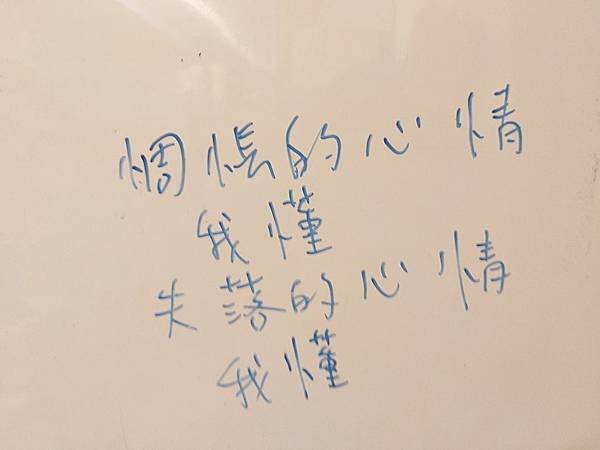 惆悵的心情
我懂
失落的心情
我懂